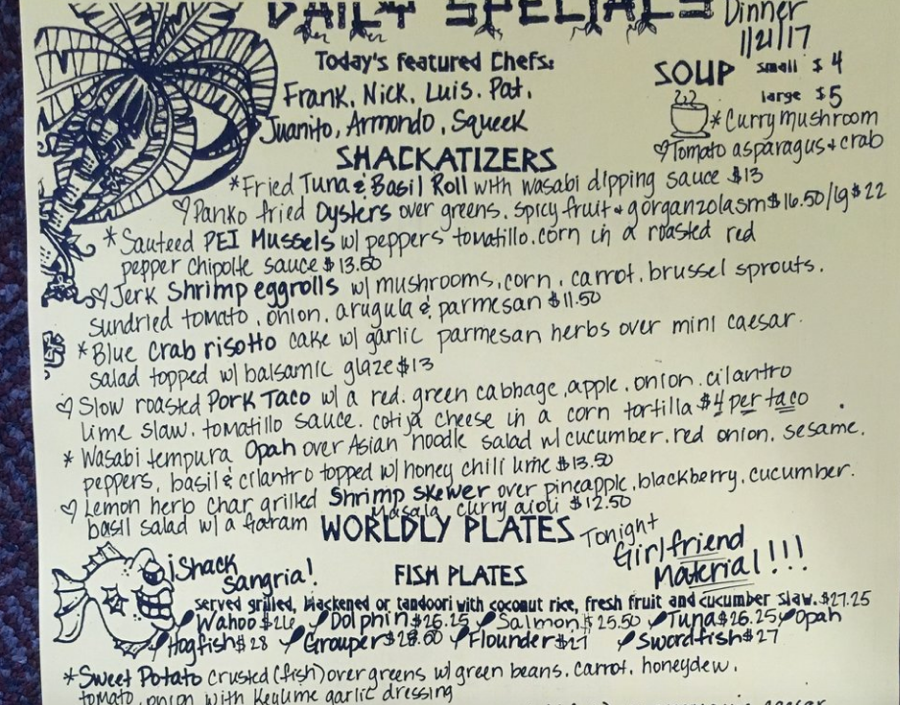 DAILY SPECIALS
Dinner
1/21/17
Today's Featured Chefs:
Frank. Nick. Luis. Pat.
Juanito, Armondo, Squeek
SOUP small $4
large $5
*Curry mushroom
♡Tomato asparagus + crab
SHACKATIZERS
*Fried Tuna & Basil Roll with wasabi dipping sauce $13
♡Panko fried Oysters over greens. spicy fruit + gorganzola sm$16.50/lg$22
*Sauteed PEI Mussels w/ peppers tomatillo.corn in a roasted red
pepper chipotle sauce $13.50
♡Jerk Shrimp eggrolls w/ mushrooms.corn. carrot. brussel sprouts.
sundried tomato. onion. arugula & parmesan $11.50
*Blue Crab risotto cake w/ garlic parmesan herbs over mini caesar.
salad topped w/ balsamic glaze $13
♡Slow roasted Pork Taco w/ a red. green cabbage.apple.onion.cilantro
lime slaw. tomatillo sauce. cotija cheese in a corn tortilla $4 per taco
*Wasabi tempura Opah over Asian noodle salad w/ cucumber.red onion. sesame.
peppers, basil & cilantro topped w/ honey chili lime $13.50
♡Lemon herb char grilled Shrimp Skewer over pineapple.blackberry.cucumber.
basil salad w/ a garam masala curry aioli $12.50
WORLDLY PLATES
Tonight
Girlfriend
Material!!!
¡Shack
Sangria!
FISH PLATES
served grilled, blackened or tandoori with coconut rice, fresh fruit and cucumber slaw. $27.25
Wahoo $26 Dolphin $26.25 Salmon $25.50 Tuna $26.25 Opah
Hogfish $28 Grouper $28.50 Flounder $27 Swordfish $27
*Sweet Potato crusted (fish) over greens w/ green beans. carrot. honeydew.
tomato.onion with Keylime garlic dressing
caesar